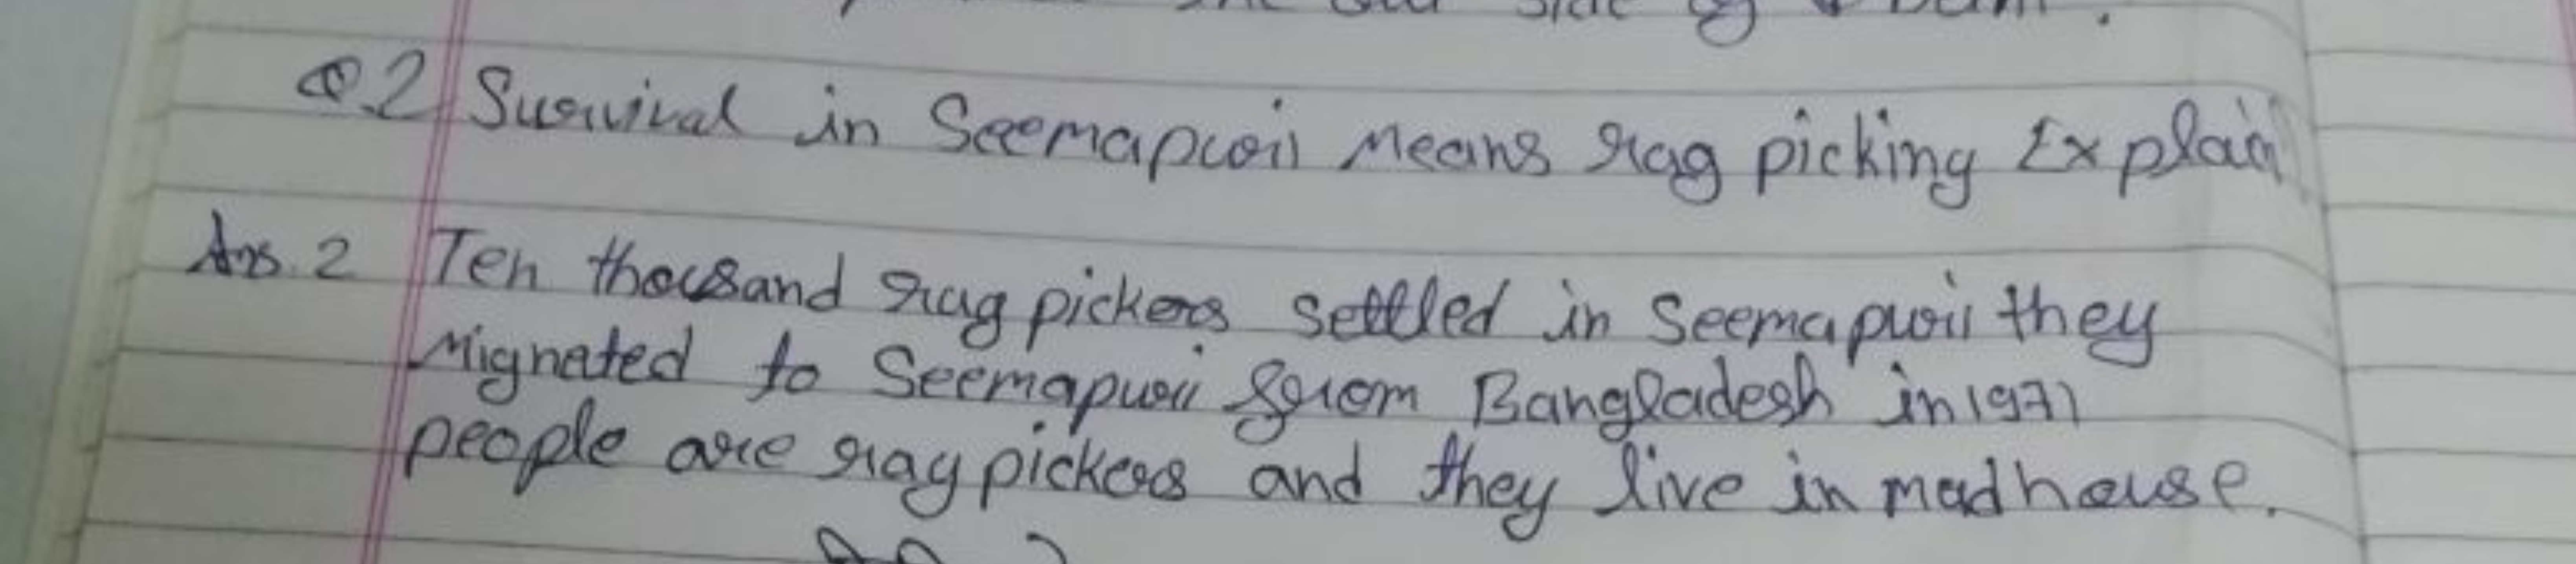 side of
Q.2 Survival in Seemapuri Means rag picking Explain
Ans. 2 Ten thousand rag pickers settled in Seemapuri they
Mignated to Seemapuri from Bangladesh in 1971
people are rag pickers and they live in mad house.